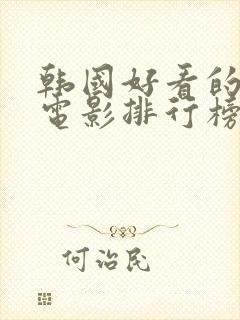 韩國好看的
電影排行榜
何治民